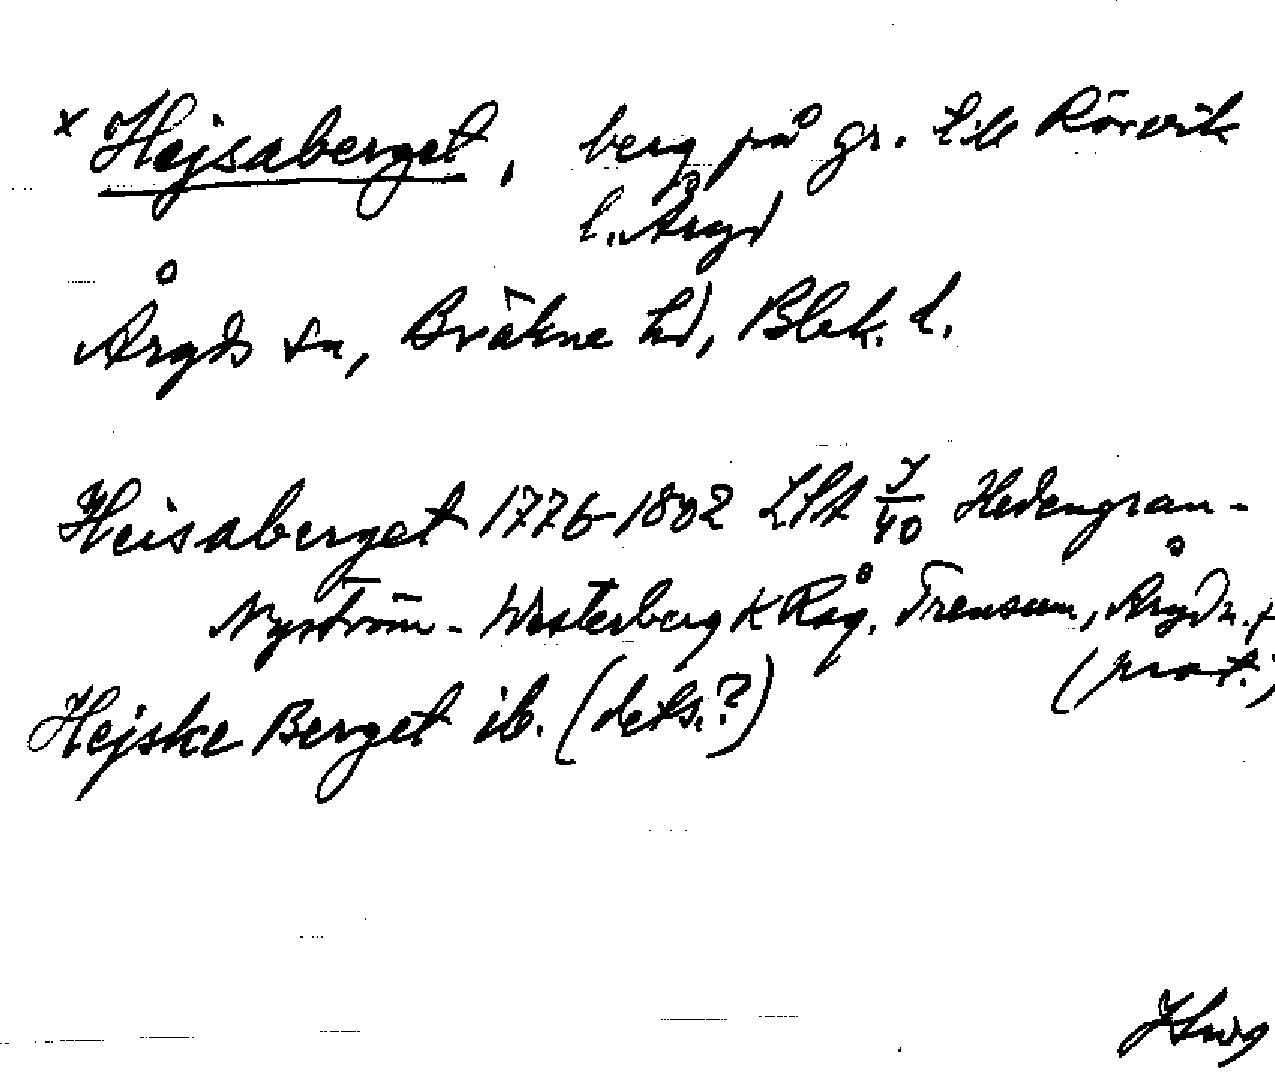 x Hejsaberget, berg på gr. till Rörvik
l. Åryd
Åryds sn, Bräkne hd, Blek. l.
Heisaberget 1776-1802 LSA J/40 Hedengran-
Nyström-Westerberg K Råg. Trensum, Åryd n.
(prot.)
Hejske Berget ib. (dets.?)